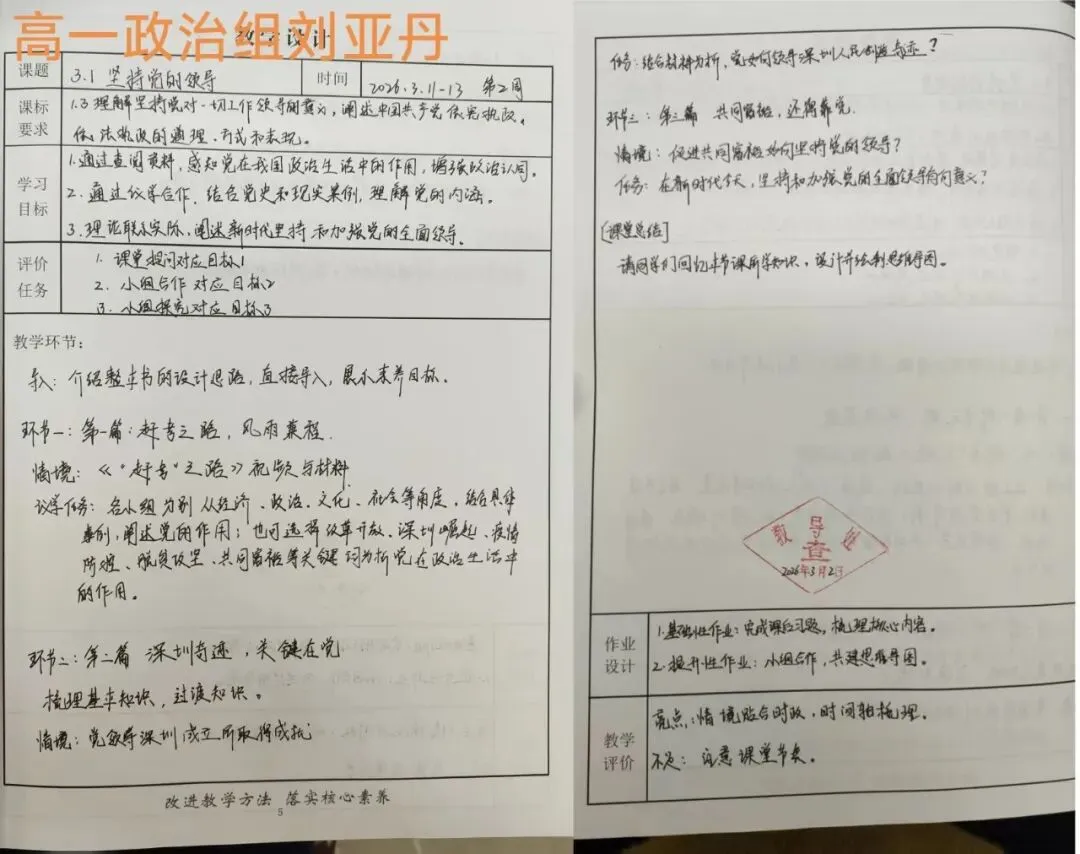 高一政治组刘亚丹
教学设计
课题
3.1 坚持党的领导
时间
2026.3.11-13 第2周
课标
要求
1.3 理解坚持党对一切工作领导的意义,阐述中国共产党依宪执政、
依法执政的道理、方式和表现。
学习
目标
1.通过查阅资料,感知党在我国政治生活中的作用,增强政治认同。
2.通过议学合作,结合党史和现实案例,理解党的内涵。
3.理论联系实际,阐述新时代坚持和加强党的全面领导。
评价
任务
1. 课堂提问对应目标1
2. 小组合作对应目标2
3. 小组探究对应目标3
教学环节:
导入: 介绍整本书的设计思路,直接导入,展示素养目标。
环节一:第一篇:赶考之路,风雨兼程.
情境:《“赶考”之路》视频与材料
议学任务:各小组分别从经济、政治、文化、社会等角度,结合具体
事例,阐述党的作用;也可选择改革开放、深圳崛起、疫情
防控、脱贫攻坚、共同富裕等关键词分析党在政治生活中
的作用。
环节二:第二篇 深圳奇迹,关键在党
梳理基本知识,过渡知识。
情境:党领导深圳成立所取得成就
改进教学方法 落实核心素养
5
任务:结合材料分析,党如何领导深圳人民创造奇迹?
环节三:第三篇 共同富裕,还得靠党.
情境:促进共同富裕如何坚持党的领导?
任务:在新时代今天,坚持和加强党的全面领导有何意义?
[课堂总结]
请同学们回忆本节课所学知识,设计并绘制思维导图。
教导处
查
2026年3月2日
作业
设计
1.基础性作业:完成课后习题,梳理核心内容。
2.提升性作业:小组合作,共建思维导图。
教学
评价
亮点:情境贴合时政,时间轴梳理。
不足:注意课堂节奏。